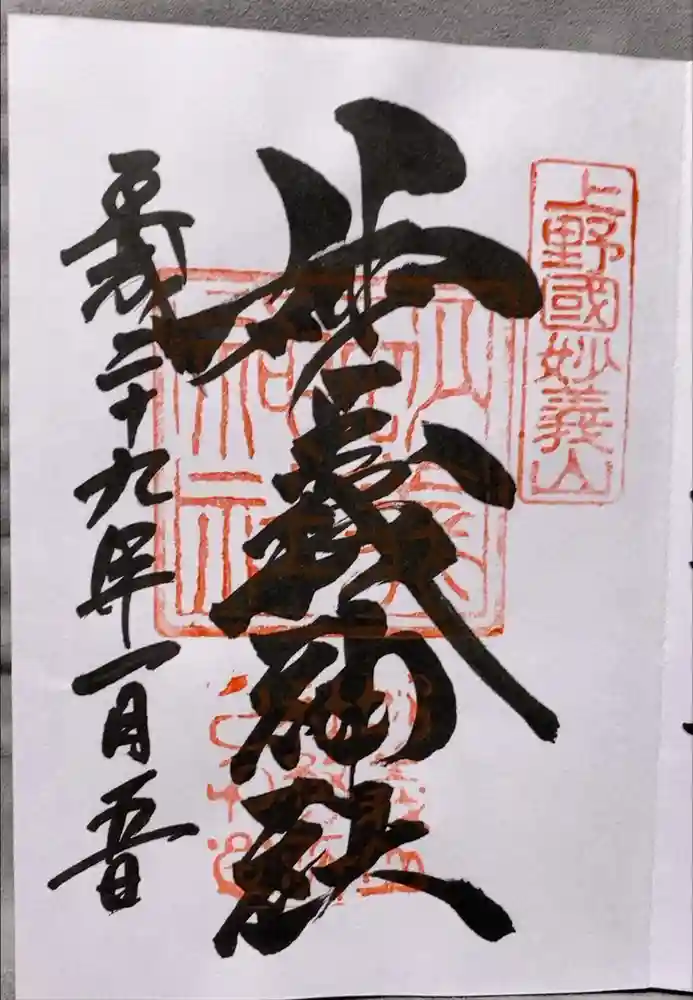 上野國妙義山
妙義神社
平成二十九年一月五日